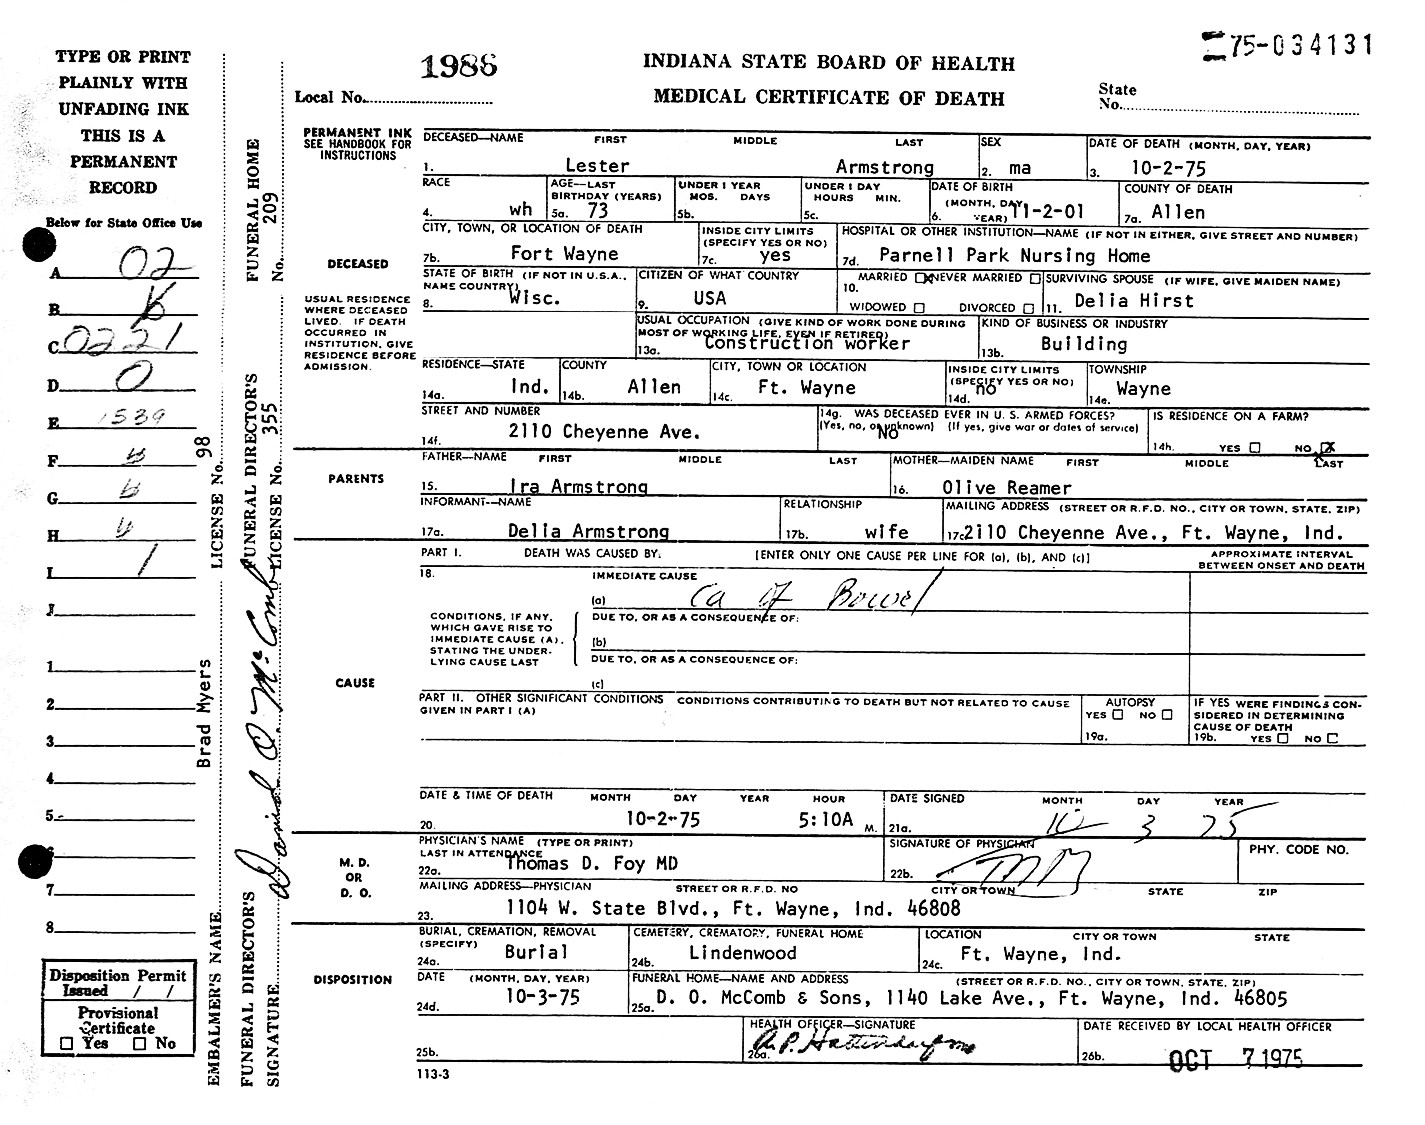 75-034131
TYPE OR PRINT
PLAINLY WITH
UNFADING INK
THIS IS A
PERMANENT
RECORD
Below for State Office Use
A 02
B
C 0221
D 0
E 1539
F
G
H
I 1
J
1
2
3
4
5
6
7
8
Disposition Permit
Issued / /
Provisional
Certificate
Yes No
EMBALMER'S NAME Brad Myers LICENSE No. 98
FUNERAL DIRECTOR'S SIGNATURE David O. McComb FUNERAL DIRECTOR'S LICENSE No. 355 FUNERAL HOME No. 209
1986
Local No.
INDIANA STATE BOARD OF HEALTH
MEDICAL CERTIFICATE OF DEATH
State
No.
PERMANENT INK
SEE HANDBOOK FOR
INSTRUCTIONS
DECEASED
USUAL RESIDENCE
WHERE DECEASED
LIVED. IF DEATH
OCCURRED IN
INSTITUTION, GIVE
RESIDENCE BEFORE
ADMISSION.
DECEASED—NAME FIRST MIDDLE LAST SEX DATE OF DEATH (MONTH, DAY, YEAR)
1. Lester Armstrong 2. ma 3. 10-2-75
RACE AGE—LAST BIRTHDAY (YEARS) UNDER 1 YEAR MOS. DAYS UNDER 1 DAY HOURS MIN. DATE OF BIRTH (MONTH, DAY, YEAR) COUNTY OF DEATH
4. wh 5a. 73 5b. 5c. 6. 11-2-01 7a. Allen
CITY, TOWN, OR LOCATION OF DEATH INSIDE CITY LIMITS (SPECIFY YES OR NO) HOSPITAL OR OTHER INSTITUTION—NAME (IF NOT IN EITHER, GIVE STREET AND NUMBER)
7b. Fort Wayne 7c. yes 7d. Parnell Park Nursing Home
STATE OF BIRTH (IF NOT IN U.S.A., NAME COUNTRY) CITIZEN OF WHAT COUNTRY MARRIED X NEVER MARRIED SURVIVING SPOUSE (IF WIFE, GIVE MAIDEN NAME)
8. Wisc. 9. USA 10. WIDOWED DIVORCED 11. Delia Hirst
USUAL OCCUPATION (GIVE KIND OF WORK DONE DURING MOST OF WORKING LIFE, EVEN IF RETIRED) KIND OF BUSINESS OR INDUSTRY
13a. Construction worker 13b. Building
RESIDENCE—STATE COUNTY CITY, TOWN OR LOCATION INSIDE CITY LIMITS (SPECIFY YES OR NO) TOWNSHIP
14a. Ind. 14b. Allen 14c. Ft. Wayne 14d. no 14e. Wayne
STREET AND NUMBER 14g. WAS DECEASED EVER IN U. S. ARMED FORCES? IS RESIDENCE ON A FARM?
(Yes, no, or unknown) (If yes, give war or dates of service)
14f. 2110 Cheyenne Ave. No 14h. YES NO X
PARENTS
FATHER—NAME FIRST MIDDLE LAST MOTHER—MAIDEN NAME FIRST MIDDLE LAST
15. Ira Armstrong 16. Olive Reamer
INFORMANT—NAME RELATIONSHIP MAILING ADDRESS (STREET OR R.F.D. NO., CITY OR TOWN, STATE, ZIP)
17a. Delia Armstrong 17b. wife 17c 2110 Cheyenne Ave., Ft. Wayne, Ind.
CAUSE
PART I. DEATH WAS CAUSED BY: [ENTER ONLY ONE CAUSE PER LINE FOR (a), (b), AND (c)] APPROXIMATE INTERVAL
BETWEEN ONSET AND DEATH
18. IMMEDIATE CAUSE
(a) Ca of Bowel
CONDITIONS, IF ANY,
WHICH GAVE RISE TO
IMMEDIATE CAUSE (A),
STATING THE UNDER-
LYING CAUSE LAST
DUE TO, OR AS A CONSEQUENCE OF:
(b)
DUE TO, OR AS A CONSEQUENCE OF:
(c)
PART II. OTHER SIGNIFICANT CONDITIONS CONDITIONS CONTRIBUTING TO DEATH BUT NOT RELATED TO CAUSE
GIVEN IN PART I (A)
AUTOPSY
YES NO
19a.
IF YES WERE FINDINGS CON-
SIDERED IN DETERMINING
CAUSE OF DEATH
19b. YES NO
M. D.
OR
D. O.
DATE & TIME OF DEATH MONTH DAY YEAR HOUR DATE SIGNED MONTH DAY YEAR
20. 10-2-75 5:10A M. 21a. 10 3 75
PHYSICIAN'S NAME (TYPE OR PRINT) SIGNATURE OF PHYSICIAN PHY. CODE NO.
LAST IN ATTENDANCE
22a. Thomas D. Foy MD 22b.
MAILING ADDRESS—PHYSICIAN STREET OR R.F.D. NO CITY OR TOWN STATE ZIP
23. 1104 W. State Blvd., Ft. Wayne, Ind. 46808
DISPOSITION
BURIAL, CREMATION, REMOVAL (SPECIFY) CEMETERY, CREMATORY, FUNERAL HOME LOCATION CITY OR TOWN STATE
24a. Burial 24b. Lindenwood 24c. Ft. Wayne, Ind.
DATE (MONTH, DAY, YEAR) FUNERAL HOME—NAME AND ADDRESS (STREET OR R.F.D. NO., CITY OR TOWN, STATE, ZIP)
24d. 10-3-75 25a. D. O. McComb & Sons, 1140 Lake Ave., Ft. Wayne, Ind. 46805
HEALTH OFFICER—SIGNATURE DATE RECEIVED BY LOCAL HEALTH OFFICER
25b. 26a. 26b. OCT 7 1975
113-3